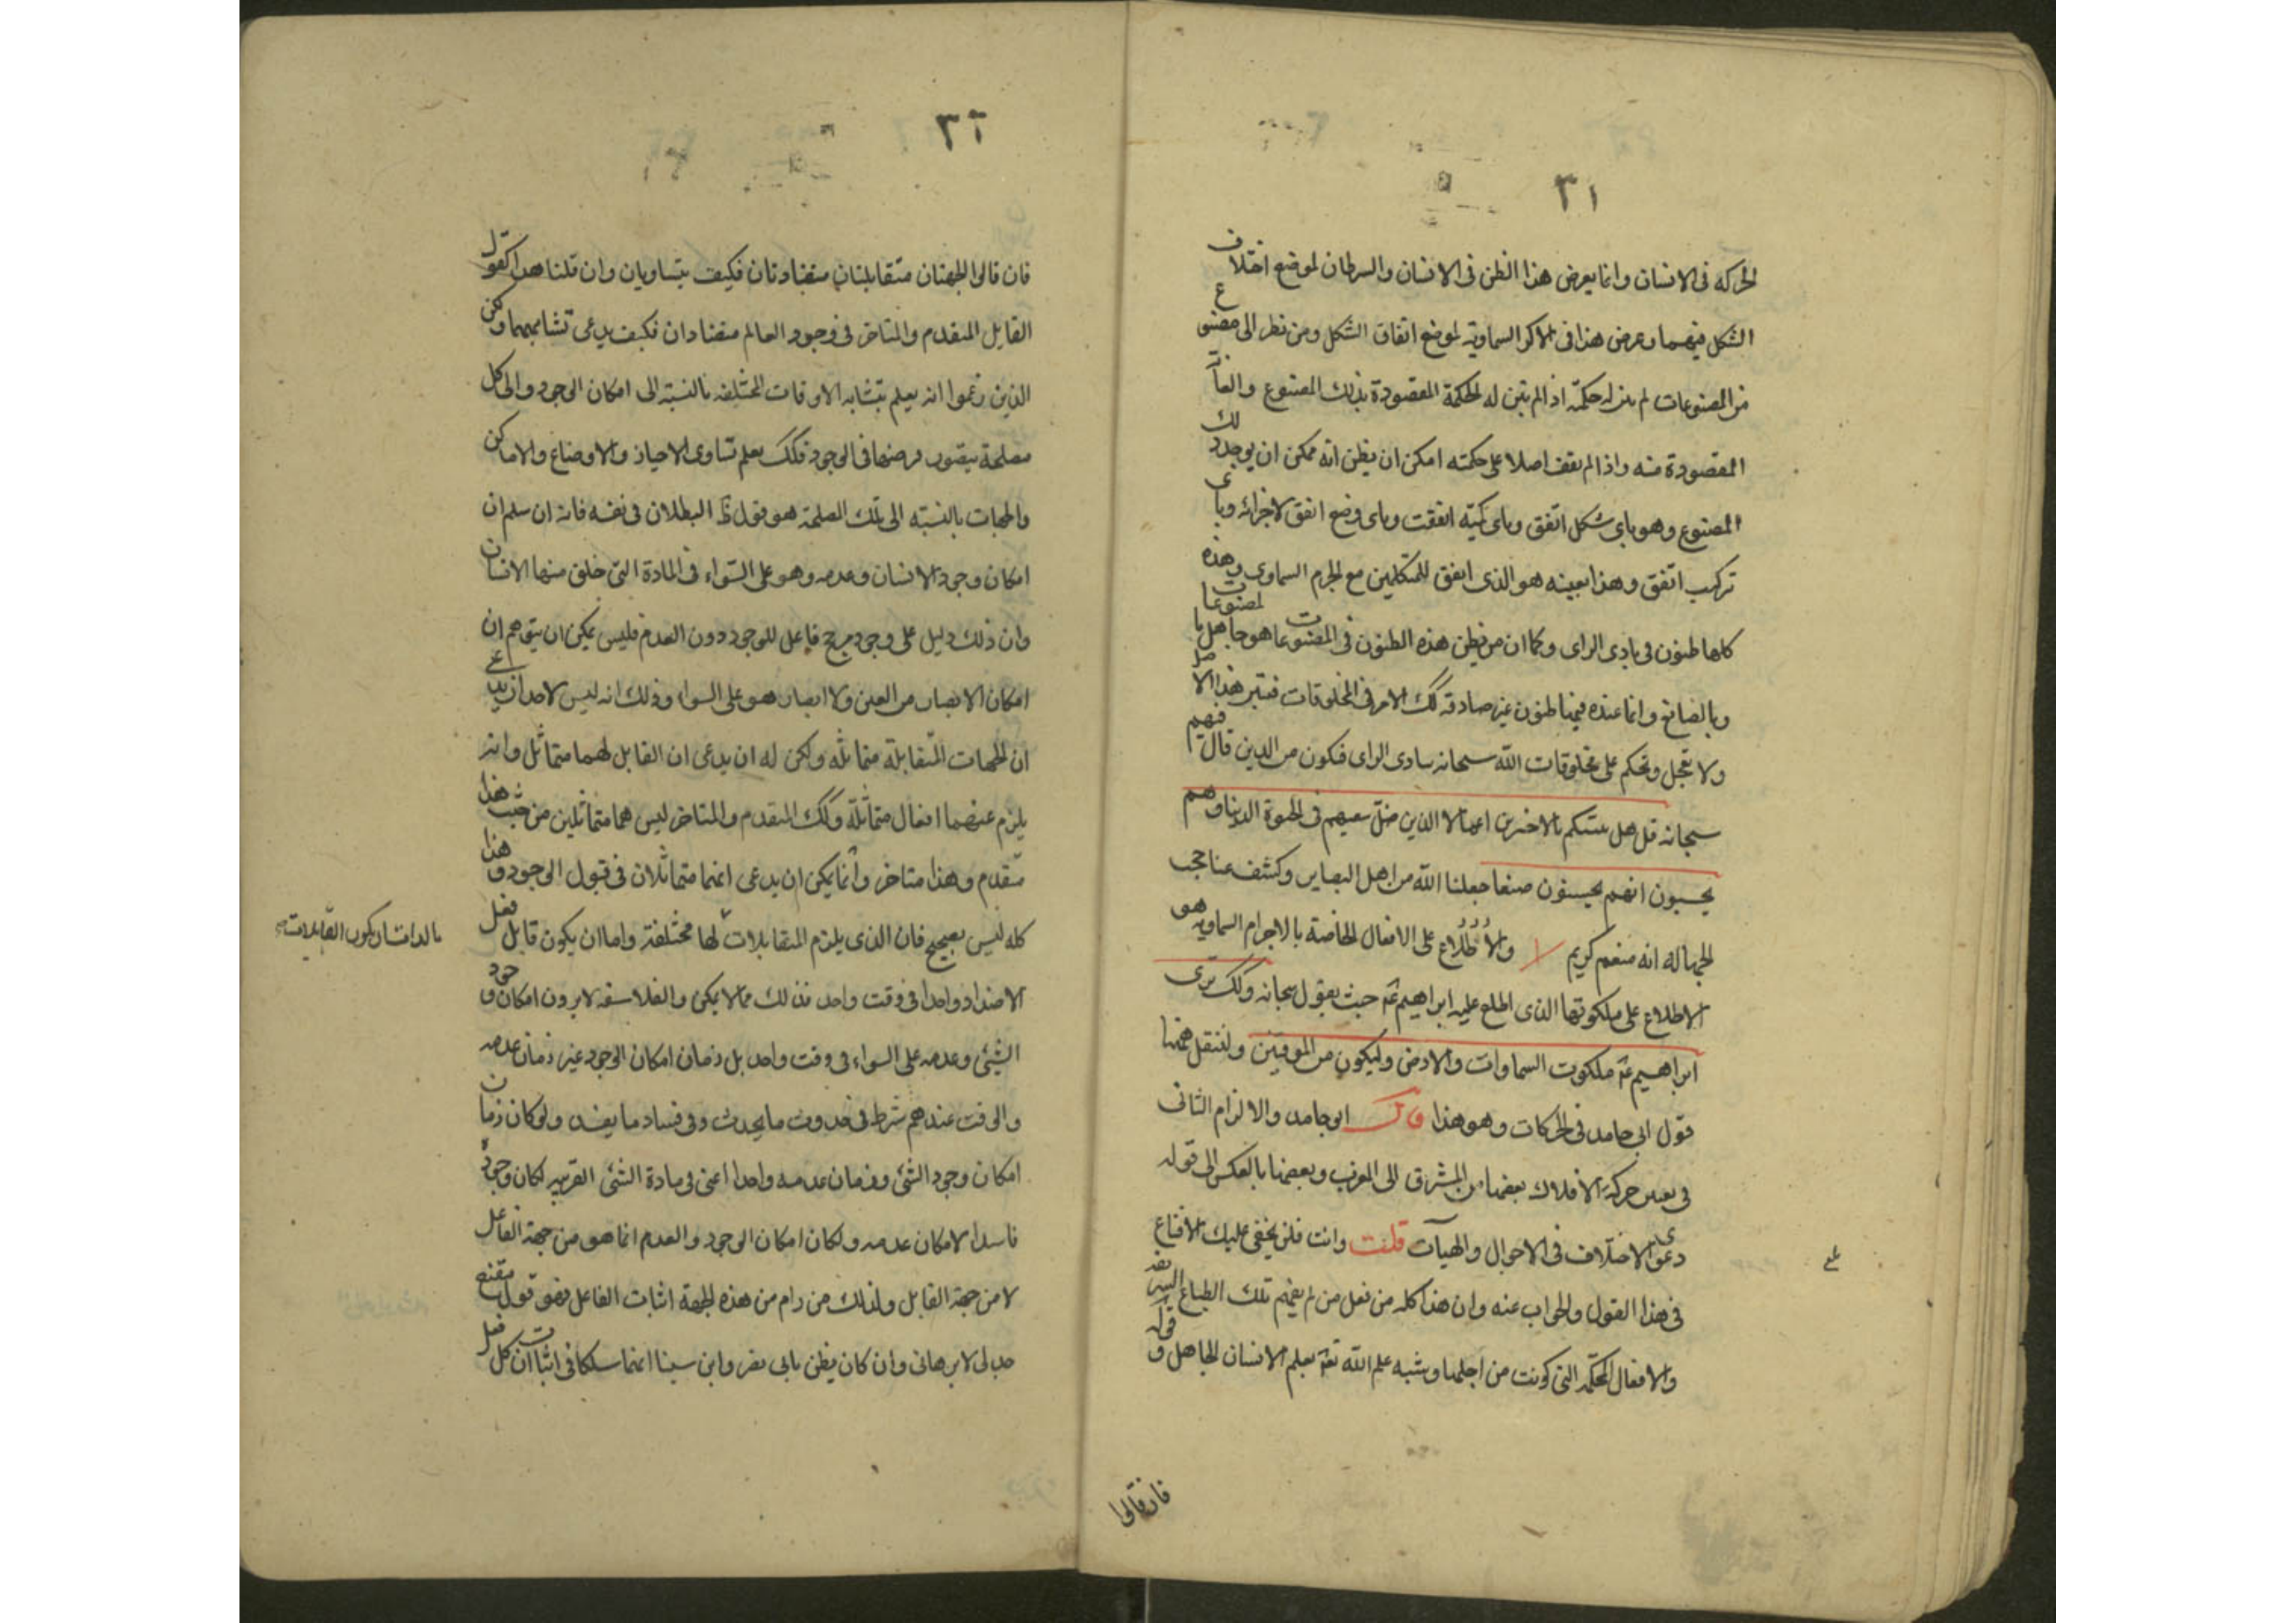 ٣١
الحركه فى الانسان وانما يعرض هذا الظن فى الانسان والسرطان لموضع اختلاف
الشكل فيهما وعرض هذا فى الاكر السماوية لموضع اتفاق الشكل ومن نظر الى مصنوع
من المصنوعات لم يتبين له حكمته اذا لم يتبين له الحكمة المقصودة بذلك المصنوع والغاية
المقصودة منه واذا لم يقف اصلا على حكمته امكن ان يظن انه ممكن ان يوجد ذلك
المصنوع وهو باى شكل اتفق وباى كمية اتفقت وباى وضع اتفق لاجزائه وباى
تركيب اتفق وهذا بعينه هو الذى اتفق للمتكلمين مع الجرم السماوى وهذه
كلها ظنون فى بادى الراى وكما ان من يظن هذه الظنون فى المصنوعات هو جاهل بالمصنوعات
وبالصانع وانما عنده فيها ظنون غير صادقة كك الامر فى المخلوقات فتبين هذا الاصل
ولا تعجل وتحكم على مخلوقات الله سبحانه ببادى الراى فتكون من الذين قال فيهم
سبحانه قل هل ننبئكم بالاخسرين اعمالا الذين ضل سعيهم فى الحيوة الدنيا وهم
يحسبون انهم يحسنون صنعا جعلنا الله من اهل البصاير وكشف عنا حجب
الجهالة انه منعم كريم والاطلاع على الافعال الخاصة بالاجرام السماوية هو
الاطلاع على ملكوتها الذى اطلع عليه ابراهيم عم حيث يقول سبحانه وكك نرى
ابراهيم عم ملكوت السماوات والارض وليكون من الموقنين ولننقل ههنا
قول ابى حامد فى الحركات وهو هذا قال ابو حامد والالزام الثانى
فى تعين حركة الافلاك بعضها من المشرق الى المغرب وبعضها بالعكس الى قوله
دعوى الاختلاف فى الاحوال والهيآت قلت وانت فلن يخفى عليك الاقناع
فى هذا القول والجواب عنه وان هذا كله من فعل من لم يفهم تلك الطبايع الشريفة
والافعال المحكمة التى كونت من اجلها وشبه علم الله تعه بعلم الانسان الجاهل وقوله
فان قالوا
٣٢
فان قالوا الجهتان متقابلتان متضادتان فكيف يتساويان وان قلنا هذا كقول
القايل المتقدم والمتاخر فى وجود العالم متضادان فكيف يدعى تشابههما ولكن
الذين زعموا انه يعلم تشابه الاوقات المختلفه بالنسبة الى امكان الوجود والى كل
مصلحة يتصور فرضها فى الوجود فكك يعلم تساوى الاحياز والاوضاع والاماكن
والجهات بالنسبة الى تلك المصلحة هو قول ظ البطلان فى نفسه فانه ان سلم ان
امكان وجود الانسان وعدمه وهو على السواء فى المادة التى خلق منها الانسان
وان ذلك دليل على وجود مرجح فاعل للوجود دون العدم فليس يمكن ان يتوهم ان
امكان الابصار من العين ولا ابصار هو على السواء وذلك انه ليس لاحد ان يدعى
ان الجهات المتقابلة متماثله ولكن له ان يدعى ان القابل لهما متماثل وانه
يلزم عنهما افعال متماثلة وكك المتقدم والمتاخر ليس هما متماثلين من حيث هذا
متقدم وهذا متاخر وانما يمكن ان يدعى انهما متماثلان فى قبول الوجود وهذا
كله ليس بصحيح فان الذى يلزم المتقابلات لها مختلفة واما ان يكون قابل فعل
بالذات ان يكون القابلات
الاضداد واحدا فى وقت واحد فذلك مما لا يمكن والفلاسفة لا يرون امكان وجود
الشئى وعدمه على السواء فى وقت واحد بل زمان امكان الوجود غير زمان عدمه
والوقت عندهم شرط فى حدوث ما يحدث وفى فساد ما يفسد ولو كان زمان
امكان وجود الشئى وزمان عدمه واحدا اعنى فى مادة الشئى القريبه لكان وجوده
فاسدا لامكان عدمه ولكان امكان الوجود والعدم انما هو من جهة الفاعل
لا من جهة القابل ولذلك من رام من هذه الجهة اثبات الفاعل فهو قول مقنع
جدلى لا برهانى وان كان يظن بابى نصر وابن سينا انهما سلكا فى اثبات ان كل فعل